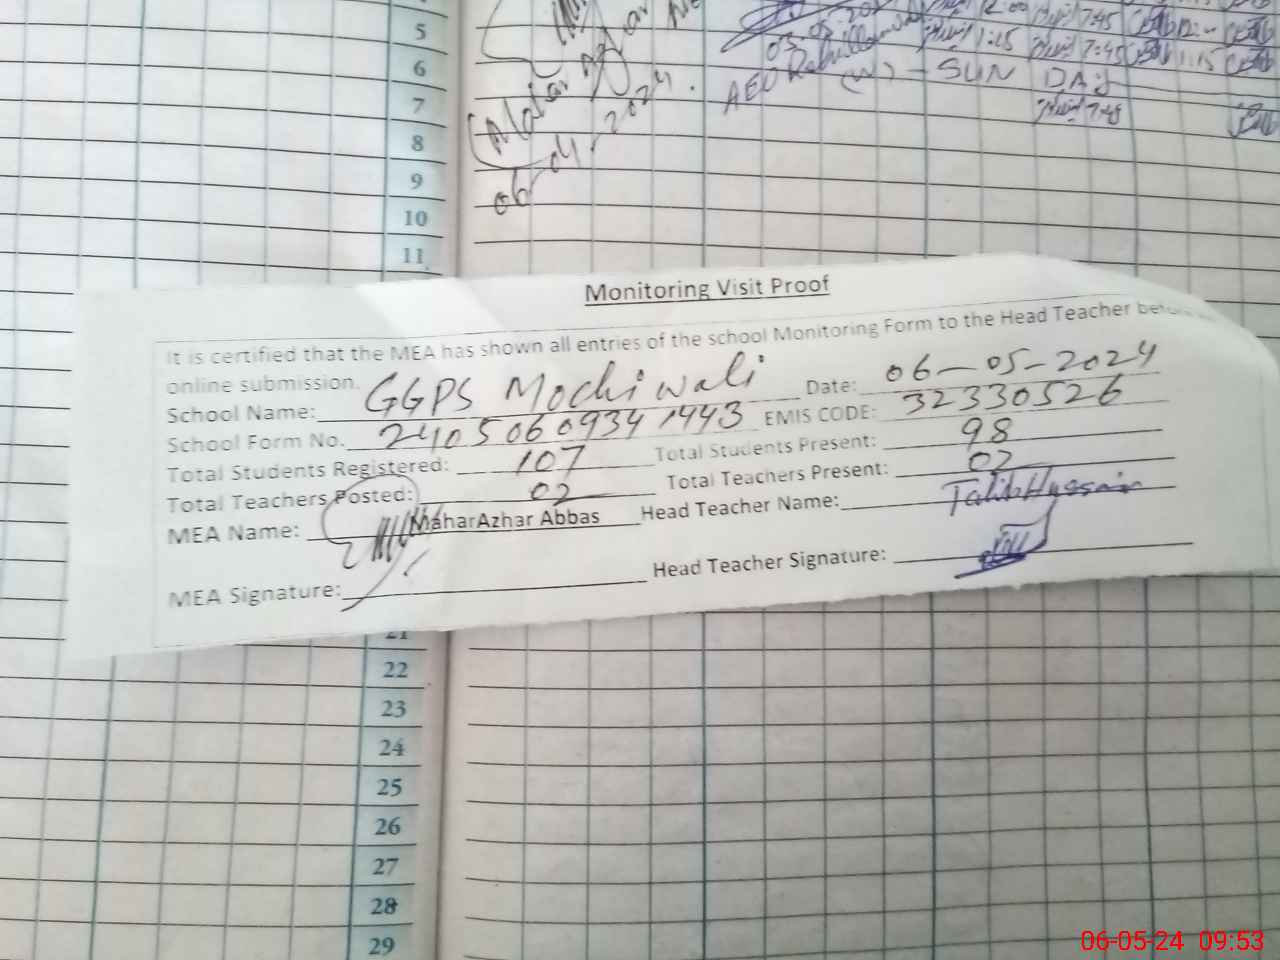 5
6
7
8
9
10
11
1:15 7:45 1:15
(W) - SUN DAY
7:45
06 - 04 - 2024.
Monitoring Visit Proof
It is certified that the MEA has shown all entries of the school Monitoring Form to the Head Teacher before
online submission.
School Name: GGPS Mochiwali Date: 06-05-2024
School Form No. 24050609341443 EMIS CODE: 32330526
Total Students Registered: 107 Total Students Present: 98
Total Teachers Posted: 02 Total Teachers Present: 02
MEA Name: MaharAzhar Abbas Head Teacher Name: Talib Hussain
MEA Signature: Head Teacher Signature:
21
22
23
24
25
26
27
28
29
06-05-24 09:53